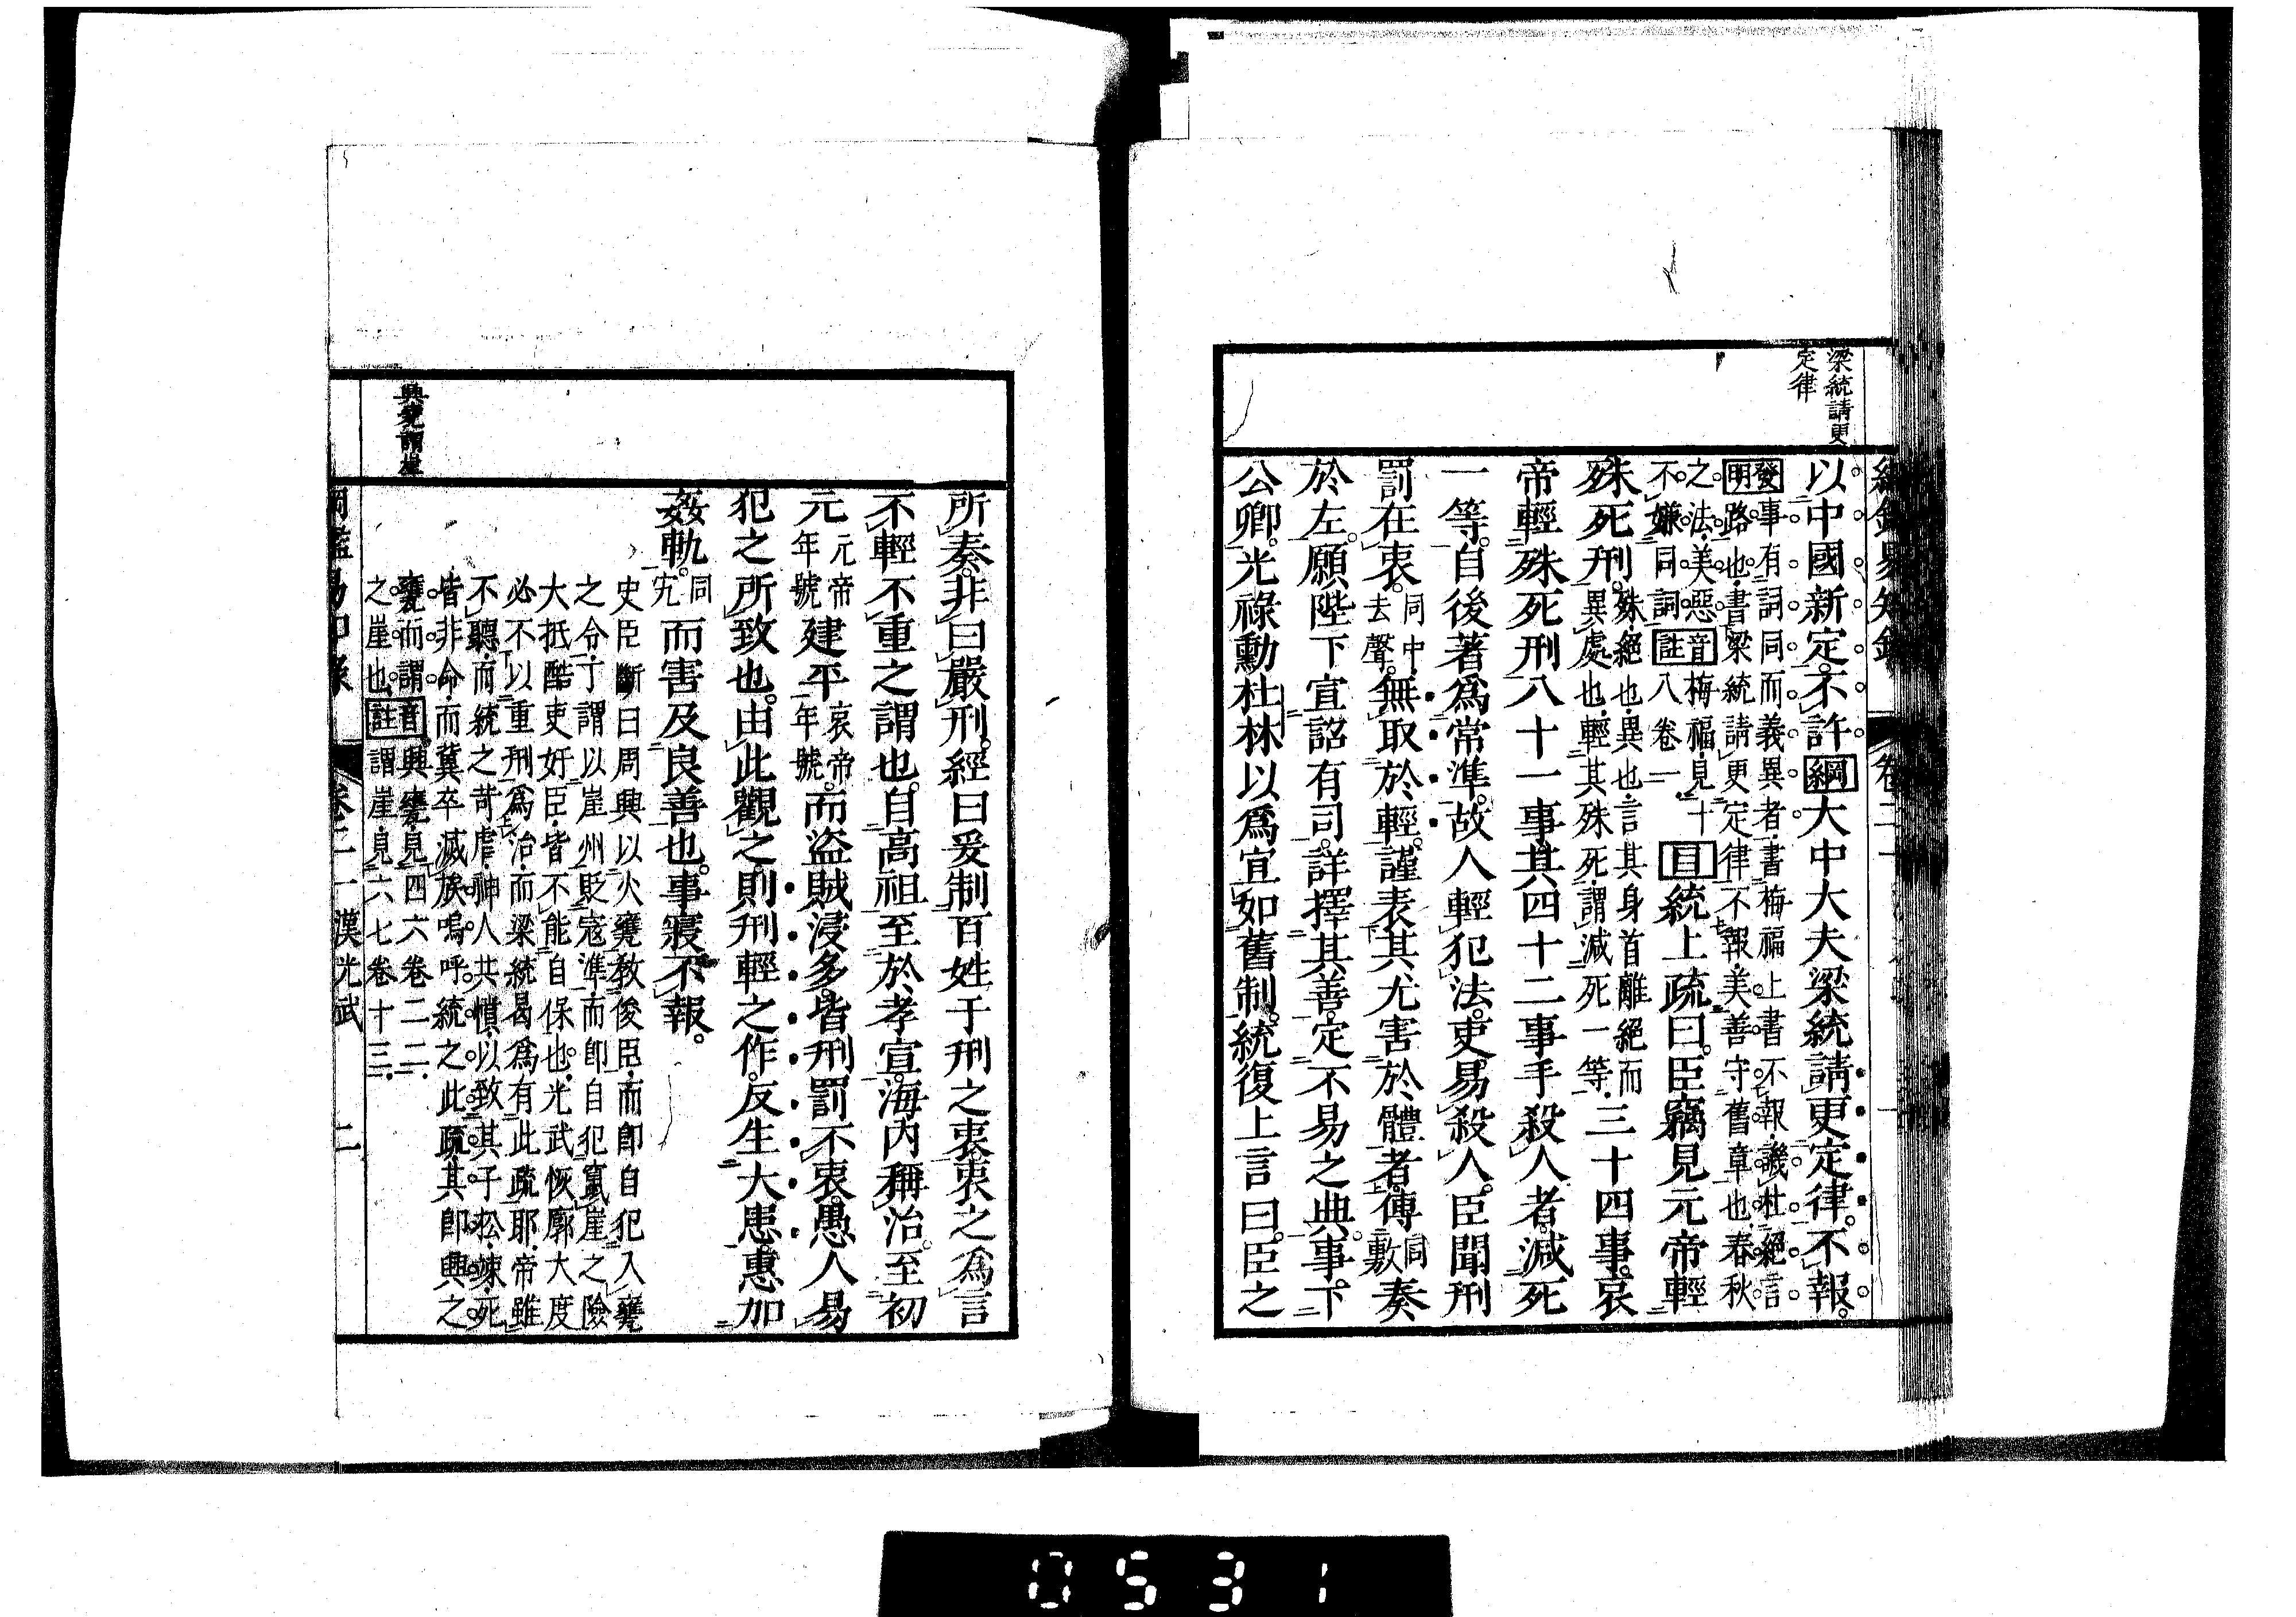 梁統請更
定律
以中國新定不許綱大中大夫梁統請更定律不報
發事有詞同而義異者書梅福上書不報譏杜絕言
明路也書梁統請更定律不報美善守舊章也春秋
之法美惡音梅福見十
不嫌同詞註八卷一
目統上疏曰臣竊見元帝輕
殊死刑
殊絕也異也言其身首離絕而
異處也輕其殊死謂減死一等
三十四事哀
帝輕殊死刑八十一事其四十二事手殺人者減死
一等自後著爲常準故人輕犯法吏易殺人臣聞刑
罰在衷
同中
去聲
無取於輕謹表其尤害於體者傅
同
敷
奏
於左願陛下宣詔有司詳擇其善定不易之典事下
公卿光祿勳杜林以爲宜如舊制統復上言曰臣之
所奏非曰嚴刑經曰爰制百姓于刑之衷衷之為言
不輕不重之謂也自高祖至於孝宣海內稱治至初
元
元帝
年號
建平
哀帝
年號
而盜賊浸多皆刑罰不衷愚人易
犯之所致也由此觀之則刑輕之作反生大患惠加
姦軌
同
宄
而害及良善也事寢不報
史臣斷曰周興以火甕教俊臣而卽自犯入甕
之令丁謂以崖州貶寇準而卽自犯竄崖之險
大抵酷吏奸臣皆不能自保也光武恢廓大度
必不以重刑爲治而梁統曷爲有此疏耶帝雖
不聽而統之苛虐神人共憤以致其子松竦死
皆非命而冀卒滅族嗚呼統之此疏其卽興之
甕而謂音興甕見四六卷二二
之崖也註謂崖見六七卷十三
興甕謂崖
卷二一 漢光武 二
0531